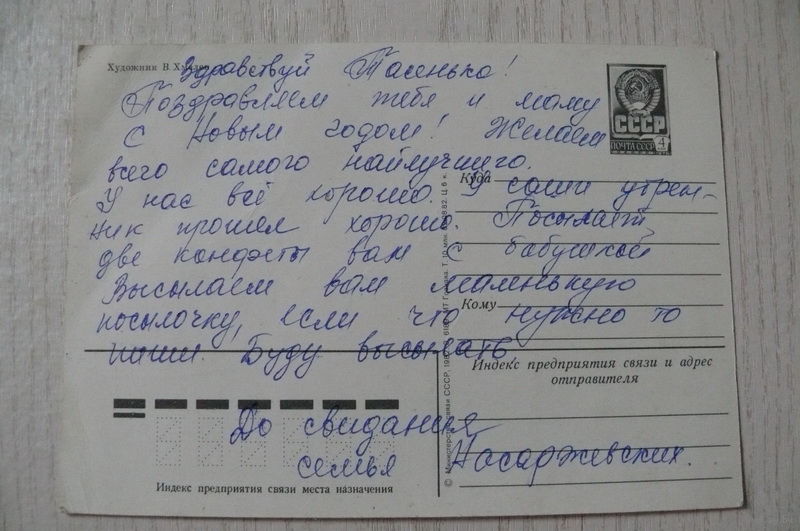 Художник В. Хмелев
Здравствуй Тасенька!
Поздравляем тебя и маму
с Новым годом! Желаем
всего самого наилучшего.
У нас всё хорошо. У Саши утрен-
ник прошел хорошо. Посылает
две конфеты вам с бабушкой
Высылаем вам маленькую
посылочку, если что нужно то
пиши. Буду высылать
До свидания
семья Насаржевских.
СССР
ПОЧТА СССР 4
Куда
Кому
Индекс предприятия связи и адрес
отправителя
Индекс предприятия связи места назначения
© Министерство связи СССР